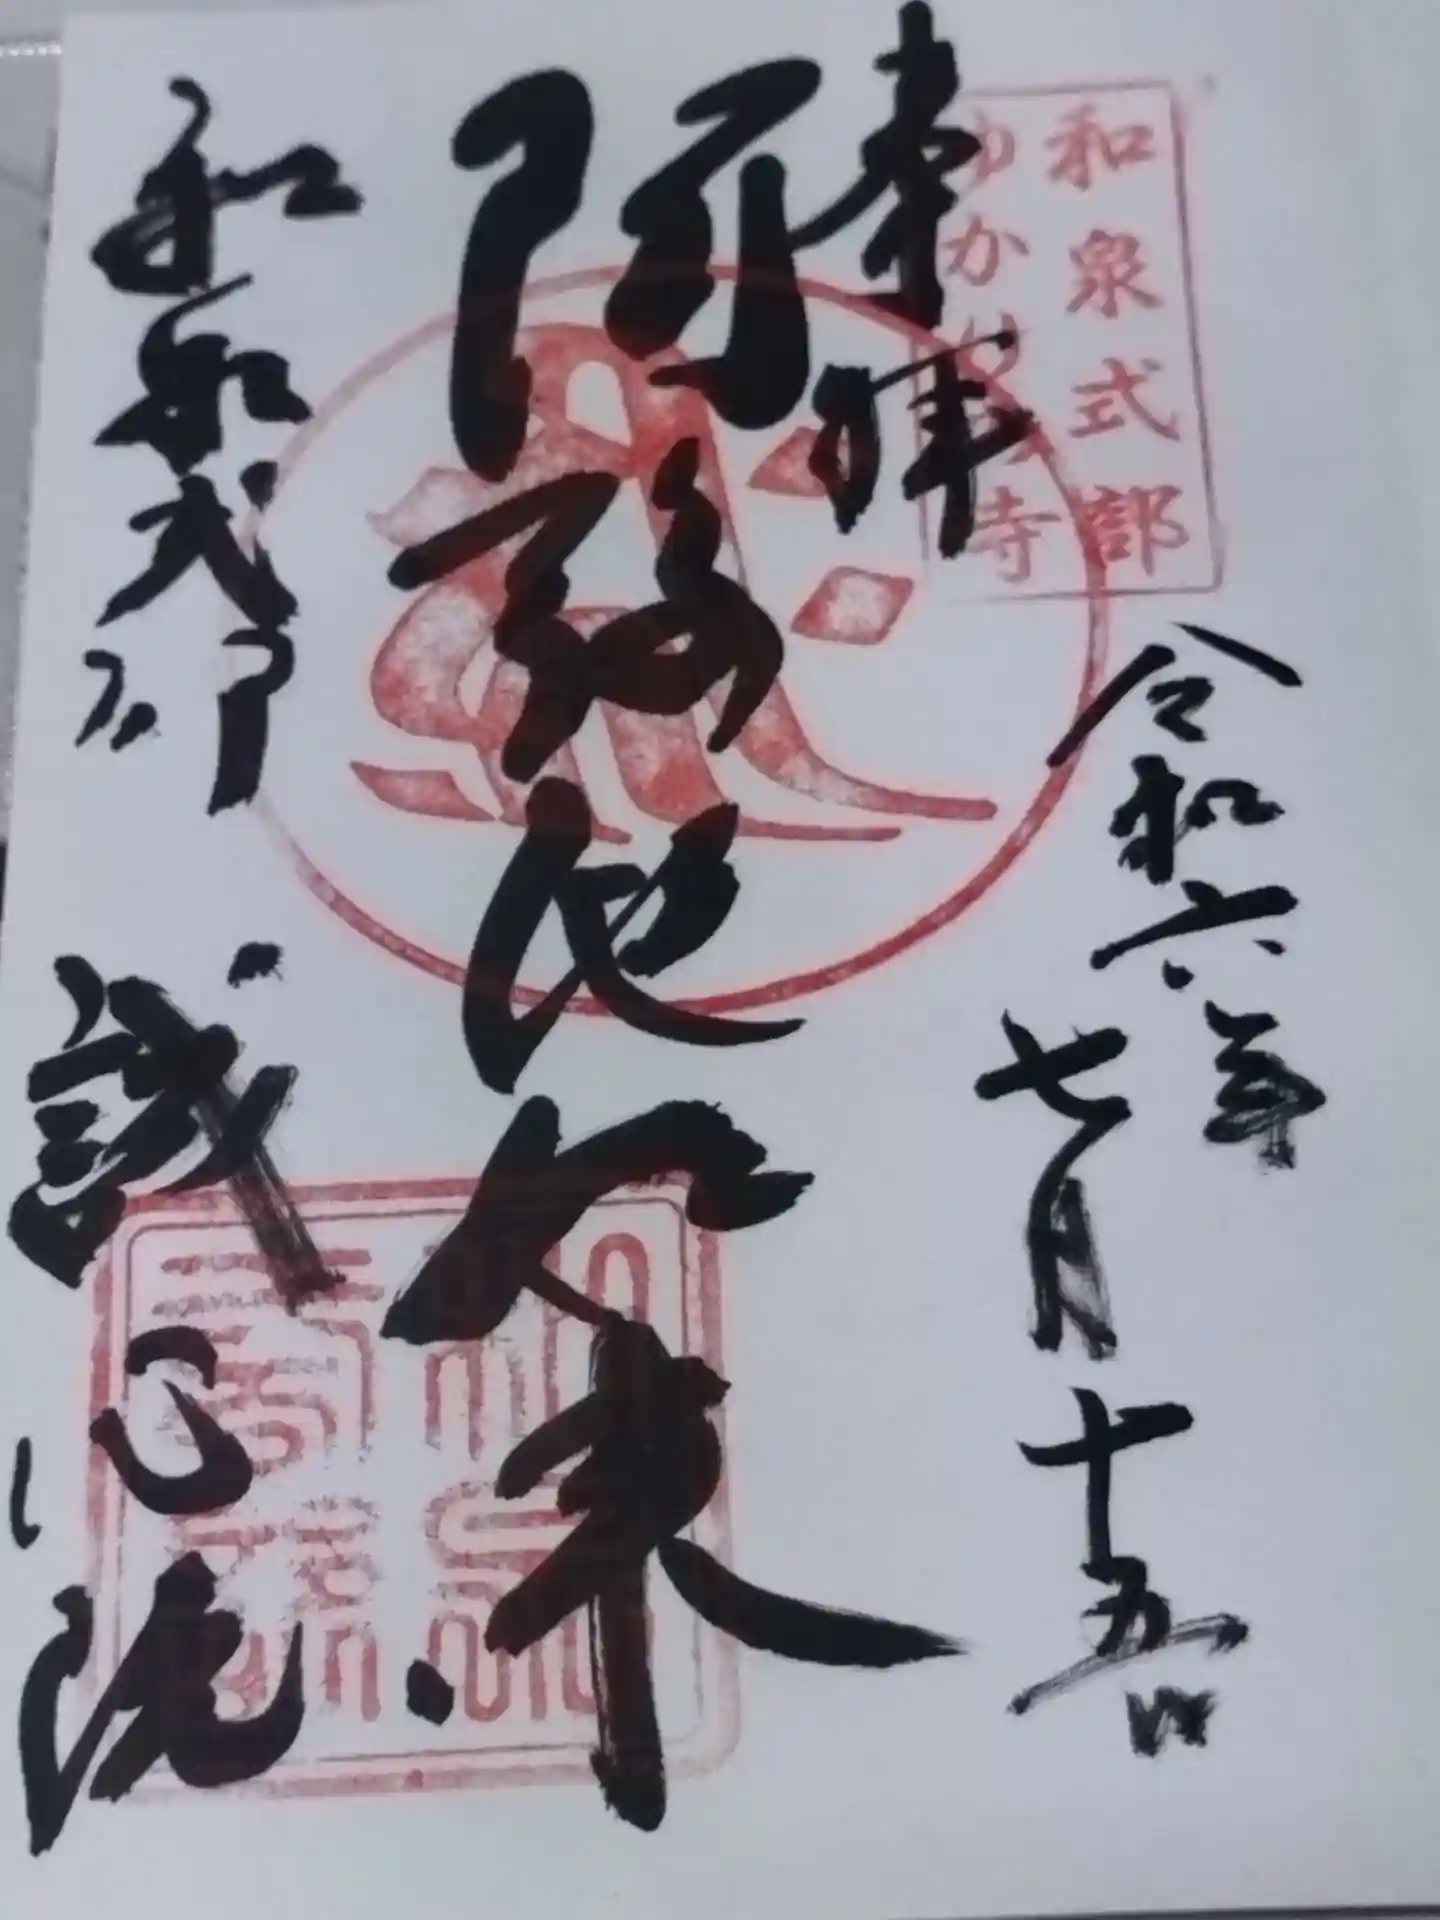 和泉式部
ゆかりの寺
奉拝
令和六年
七月十五日
阿弥陀如来
和泉式部
誠心院